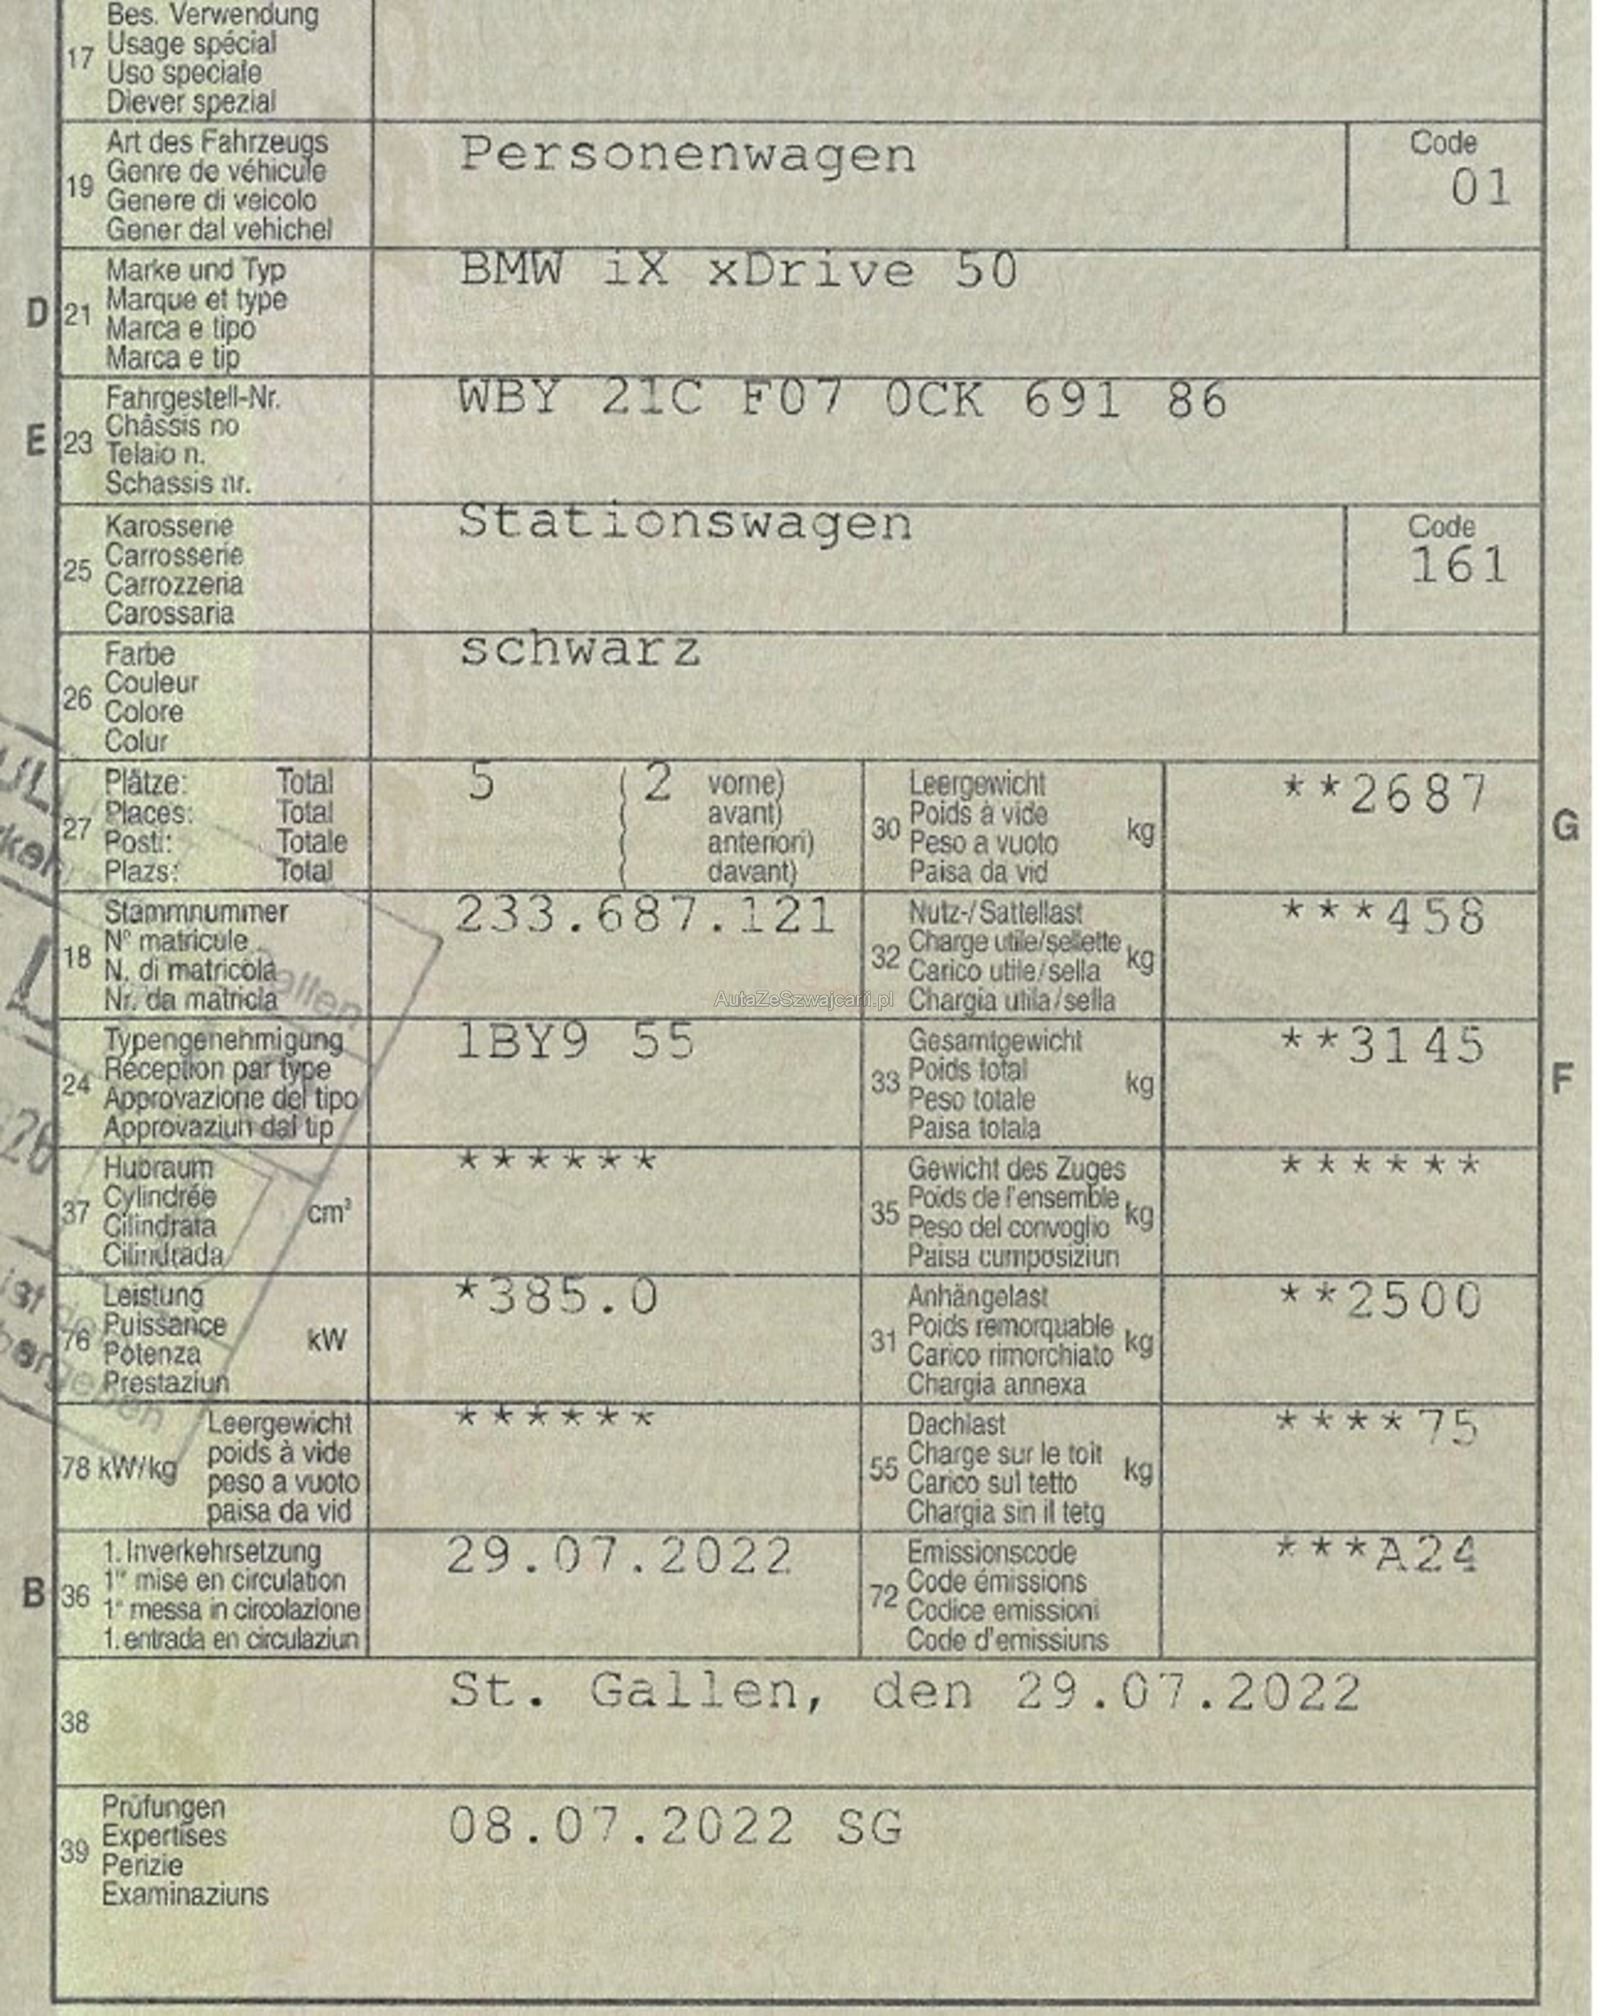 Bes. Verwendung
17 Usage spécial
Uso speciale
Diever spezial
Art des Fahrzeugs Personenwagen Code
19 Genre de véhicule 01
Genere di veicolo
Gener dal vehichel
Marke und Typ BMW iX xDrive 50
D 21 Marque et type
Marca e tipo
Marca e tip
Fahrgestell-Nr. WBY 21C F07 0CK 691 86
E 23 Châssis no
Telaio n.
Schassis nr.
Karosserie Stationswagen Code
25 Carrosserie 161
Carrozzeria
Carossaria
Farbe schwarz
26 Couleur
Colore
Colur
Plätze: Total 5 ( 2 vorne) Leergewicht **2687
27 Places: Total ( avant) 30 Poids à vide kg G
Posti: Totale ( anteriori) Peso a vuoto
Plazs: Total ( davant) Paisa da vid
Stammnummer 233.687.121 Nutz-/Sattellast ***458
18 N° matricule 32 Charge utile/sellette kg
N. di matricola Carico utile/sella
Nr. da matricla Chargia utila/sella
AutaZeSzwajcarii.pl
Typengenehmigung 1BY9 55 Gesamtgewicht **3145
24 Réception par type 33 Poids total kg F
Approvazione del tipo Peso totale
Approvaziun dal tip Paisa totala
Hubraum ****** Gewicht des Zuges ******
37 Cylindrée cm³ 35 Poids de l'ensemble kg
Cilindrata Peso del convoglio
Cilindrada Paisa cumposiziun
Leistung *385.0 Anhängelast **2500
76 Puissance kW 31 Poids remorquable kg
Potenza Carico rimorchiato
Prestaziun Chargia annexa
Leergewicht ****** Dachlast ****75
78 kW/kg poids à vide 55 Charge sur le toit kg
peso a vuoto Carico sul tetto
paisa da vid Chargia sin il tetg
1. Inverkehrsetzung 29.07.2022 Emissionscode ***A24
B 36 1re mise en circulation 72 Code émissions
1a messa in circolazione Codice emissioni
1. entrada en circulaziun Code d'emissiuns
38 St. Gallen, den 29.07.2022
Prüfungen 08.07.2022 SG
39 Expertises
Perizie
Examinaziuns